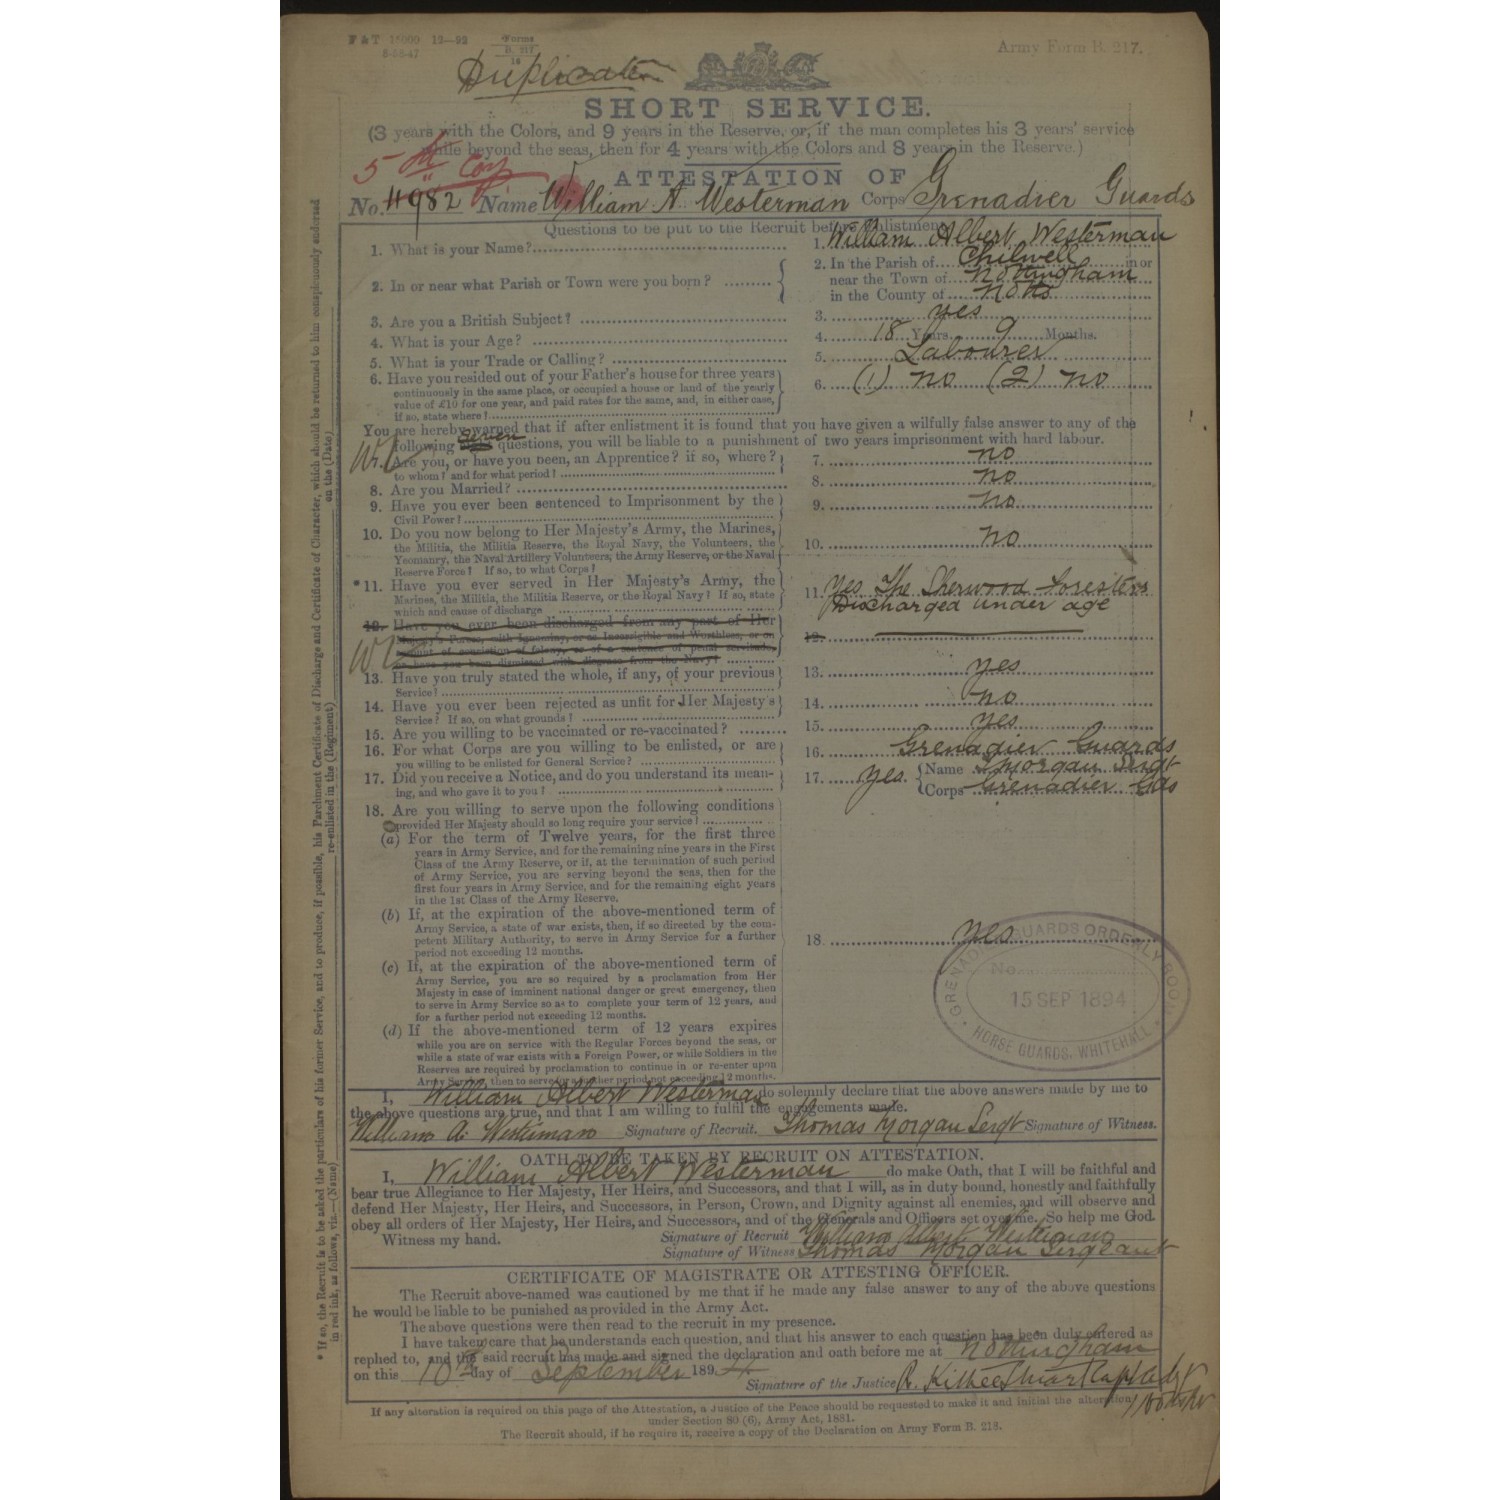 F & T 15000 12—92
8-98-47
Forms
B. 217
16
Army Form B. 217.
Duplicate
SHORT SERVICE.
(3 years with the Colors, and 9 years in the Reserve, or, if the man completes his 3 years' service
while beyond the seas, then for 4 years with the Colors and 8 years in the Reserve.)
5
ATTESTATION OF
No. 4982 Name William A Westerman Corps Grenadier Guards
Questions to be put to the Recruit before Enlistment.
1. What is your Name? 1. William Albert Westerman
2. In or near what Parish or Town were you born? 2. In the Parish of Chilwell in or
near the Town of Nottingham
in the County of Notts
3. Are you a British Subject? 3. yes
4. What is your Age? 4. 18 Years 9 Months.
5. What is your Trade or Calling? 5. Labourer
6. Have you resided out of your Father's house for three years
continuously in the same place, or occupied a house or land of the yearly
value of £10 for one year, and paid rates for the same, and, in either case,
If so, state where? 6. (1) no (2) no
You are hereby warned that if after enlistment it is found that you have given a wilfully false answer to any of the
following seven questions, you will be liable to a punishment of two years imprisonment with hard labour.
7. Are you, or have you been, an Apprentice? if so, where?
to whom? and for what period? 7. no
8. Are you Married? 8. no
9. Have you ever been sentenced to Imprisonment by the
Civil Power? 9. no
10. Do you now belong to Her Majesty's Army, the Marines,
the Militia, the Militia Reserve, the Royal Navy, the Volunteers, the
Yeomanry, the Naval Artillery Volunteers, the Army Reserve, or the Naval
Reserve Force? If so, to what Corps? 10. no
*11. Have you ever served in Her Majesty's Army, the
Marines, the Militia, the Militia Reserve, or the Royal Navy? If so, state
which and cause of discharge 11. yes The Sherwood Foresters
Discharged under age
12. Have you ever been discharged from any part of Her
Majesty's Forces, with Ignominy, or as Incorrigible and Worthless, or on
account of conviction of felony, or of a sentence of penal servitude,
or have you been dismissed with disgrace from the Navy? 12.
13. Have you truly stated the whole, if any, of your previous
Service? 13. yes
14. Have you ever been rejected as unfit for Her Majesty's
Service? If so, on what grounds? 14. no
15. Are you willing to be vaccinated or re-vaccinated? 15. yes
16. For what Corps are you willing to be enlisted, or are
you willing to be enlisted for General Service? 16. Grenadier Guards
17. Did you receive a Notice, and do you understand its mean-
ing, and who gave it to you? 17. yes Name T Morgan Sergt
Corps Grenadier Gds
18. Are you willing to serve upon the following conditions
provided Her Majesty should so long require your service?
(a) For the term of Twelve years, for the first three
years in Army Service, and for the remaining nine years in the First
Class of the Army Reserve, or if, at the termination of such period
of Army Service, you are serving beyond the seas, then for the
first four years in Army Service, and for the remaining eight years
in the 1st Class of the Army Reserve.
(b) If, at the expiration of the above-mentioned term of
Army Service, a state of war exists, then, if so directed by the com-
petent Military Authority, to serve in Army Service for a further
period not exceeding 12 months.
(c) If, at the expiration of the above-mentioned term of
Army Service, you are so required by a proclamation from Her
Majesty in case of imminent national danger or great emergency, then
to serve in Army Service so as to complete your term of 12 years, and
for a further period not exceeding 12 months.
(d) If the above-mentioned term of 12 years expires
while you are on service with the Regular Forces beyond the seas, or
while a state of war exists with a Foreign Power, or while Soldiers in the
Reserves are required by proclamation to continue in or re-enter upon
Army Service, then to serve for a further period not exceeding 12 months.
18. yes
GRENADIER GUARDS ORDERLY ROOM
No.
15 SEP 1894
HORSE GUARDS, WHITEHALL
I, William Albert Westerman do solemnly declare that the above answers made by me to
the above questions are true, and that I am willing to fulfil the engagements made.
William A. Westerman Signature of Recruit. Thomas Morgan Sergt Signature of Witness.
OATH TO BE TAKEN BY RECRUIT ON ATTESTATION.
I, William Albert Westerman do make Oath, that I will be faithful and
bear true Allegiance to Her Majesty, Her Heirs, and Successors, and that I will, as in duty bound, honestly and faithfully
defend Her Majesty, Her Heirs, and Successors, in Person, Crown, and Dignity against all enemies, and will observe and
obey all orders of Her Majesty, Her Heirs, and Successors, and of the Generals and Officers set over me. So help me God.
Witness my hand. Signature of Recruit William Albert Westerman
Signature of Witness Thomas Morgan Sergeant
CERTIFICATE OF MAGISTRATE OR ATTESTING OFFICER.
The Recruit above-named was cautioned by me that if he made any false answer to any of the above questions
he would be liable to be punished as provided in the Army Act.
The above questions were then read to the recruit in my presence.
I have taken care that he understands each question, and that his answer to each question has been duly entered as
replied to, and the said recruit has made and signed the declaration and oath before me at Nottingham
on this 10th day of September 1894
Signature of the Justice
If any alteration is required on this page of the Attestation, a Justice of the Peace should be requested to make it and initial the alteration
under Section 80 (6), Army Act, 1881.
The Recruit should, if he require it, receive a copy of the Declaration on Army Form B. 218.
* If so, the Recruit is to be asked the particulars of his former Service, and to produce, if possible, his Parchment Certificate of Discharge and Certificate of Character, which should be returned to him conspicuously endorsed
in red ink, as follows, viz.—(Name) re-enlisted in the (Regiment) on the (Date)